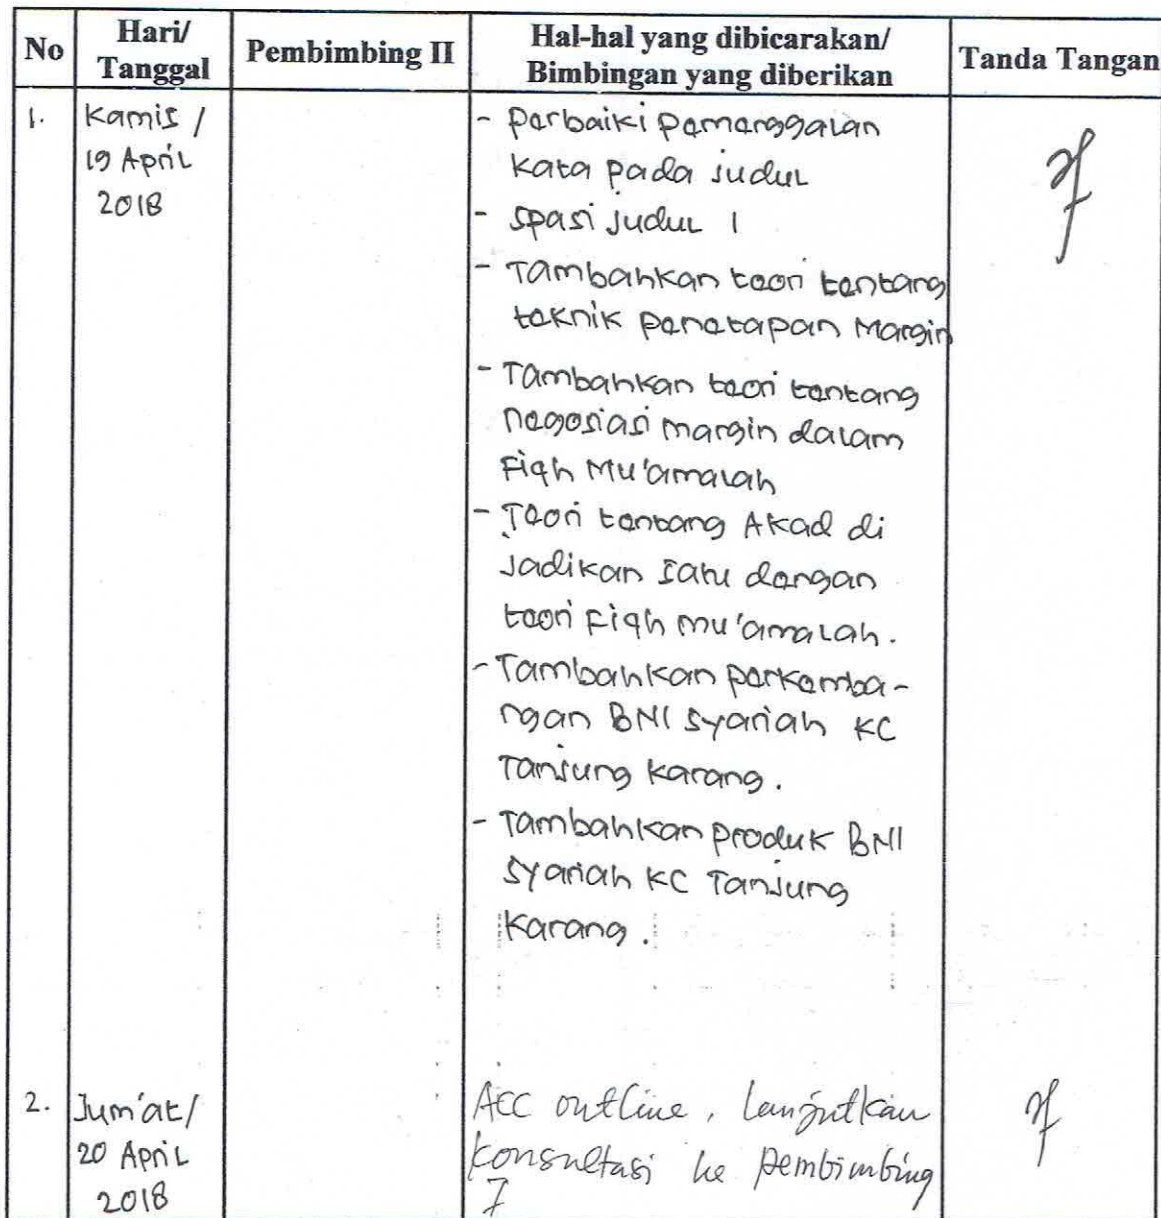 No Hari/ Tanggal Pembimbing II Hal-hal yang dibicarakan/ Bimbingan yang diberikan Tanda Tangan
1. Kamis / - Perbaiki pemenggalan
19 April kata pada judul
2018 - Spasi judul 1
- Tambahkan teori tentang
teknik penetapan Margin
- Tambahkan teori tentang
negosiasi margin dalam
Fiqh Mu'amalah
- Teori tentang Akad di
jadikan satu dengan
teori Fiqh mu'amalah.
- Tambahkan perkemba-
ngan BNI Syariah KC
Tanjung Karang.
- Tambahkan produk BNI
Syariah KC Tanjung
Karang.
2. Jum'at/ ACC outline, lanjutkan
20 April konsultasi ke pembimbing
2018 I